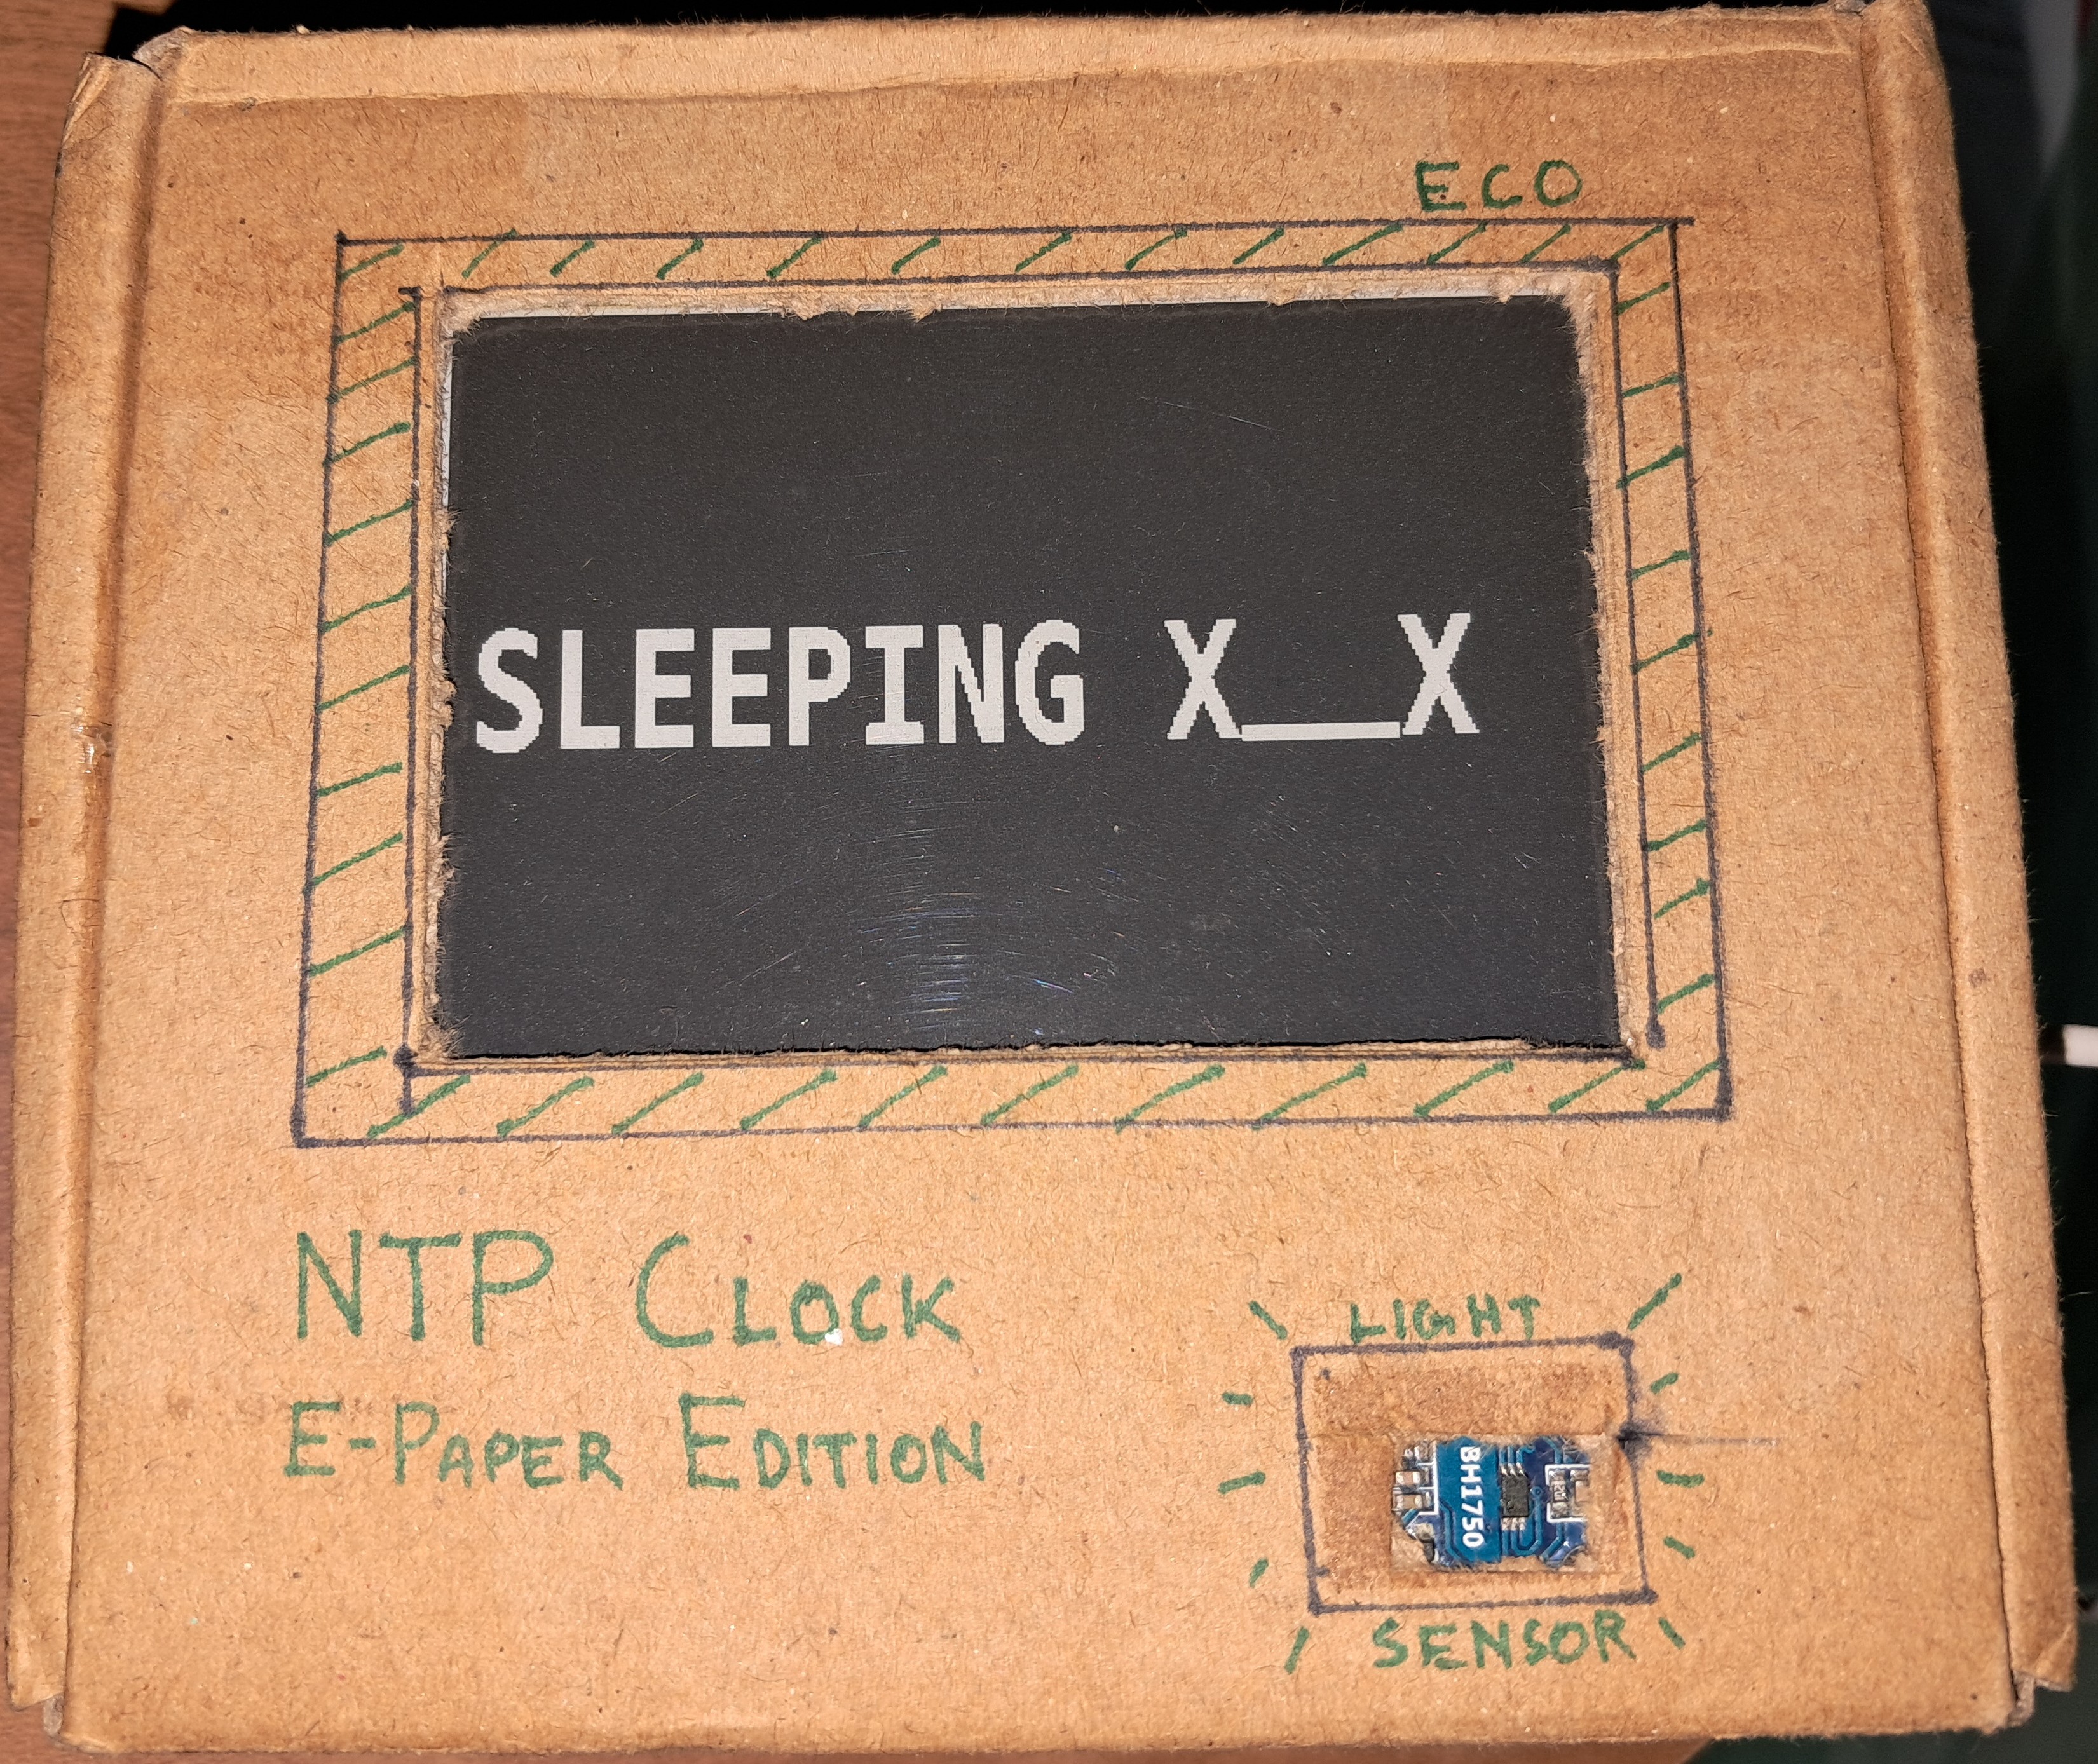 ECO
SLEEPING X__X
NTP CLOCK
E-PAPER EDITION
LIGHT
BH1750
SENSOR